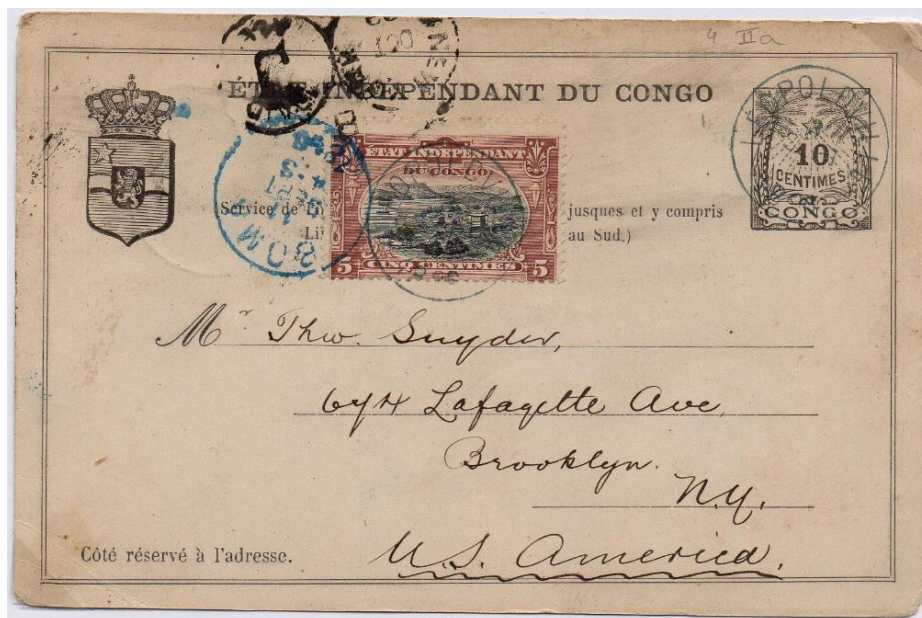 4 IIa
ÉTAT INDÉPENDANT DU CONGO
LÉOPOLDVILLE
10
CENTIMES
CONGO
NEW
OCT
ETAT INDEPENDANT
DU CONGO
5 CINQ CENTIMES 5
BOMA
SEPT
Service de
jusques et y compris
au Sud.)
Mr Theo. Snyder,
674 Lafayette Ave,
Brooklyn.
N.Y.
U.S. America.
Côté réservé à l'adresse.